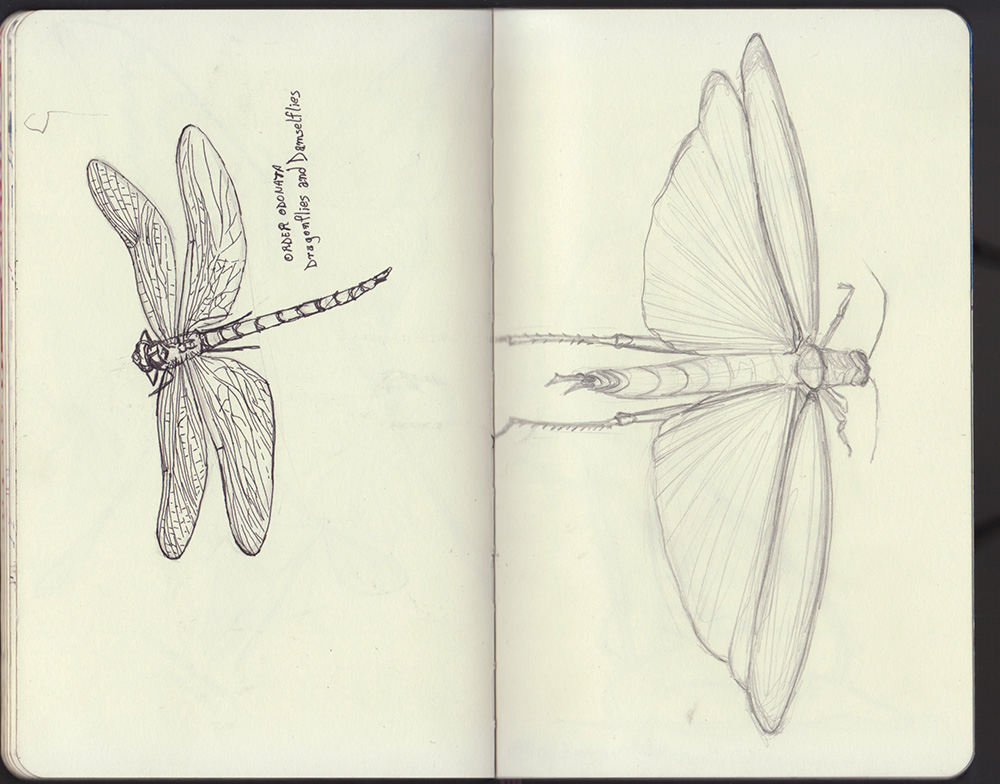 ORDER ODONATA
Dragonflies and Damselflies